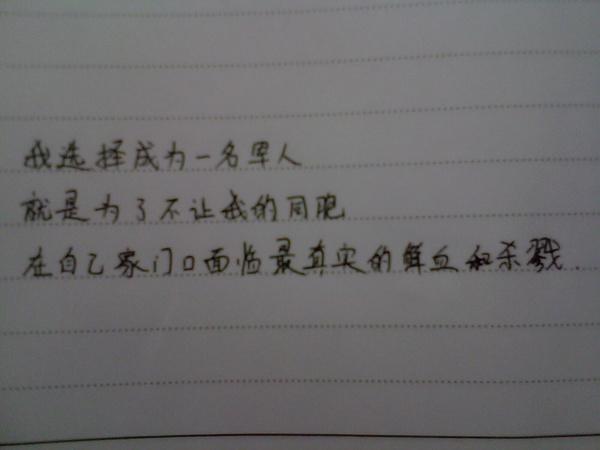 我选择成为一名军人
就是为了不让我的同胞
在自己家门口面临最真实的鲜血和杀戮.